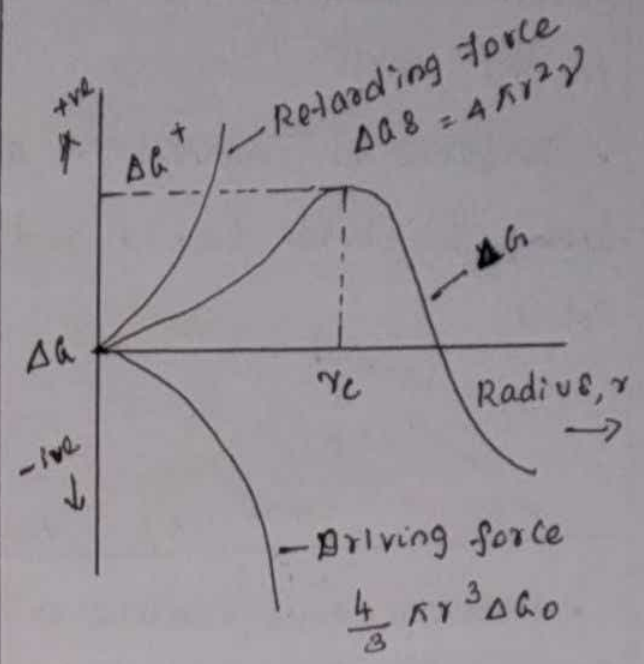 +ve
Retarding force
ΔGs = 4πr²γ
ΔG⁺
ΔG
ΔG
rc
Radius, r
-ive
Driving force
4/3 πr³ΔG0